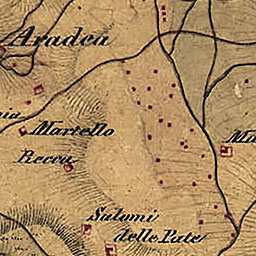 Aradea
Martello
Recca
Salomi
delle Pate